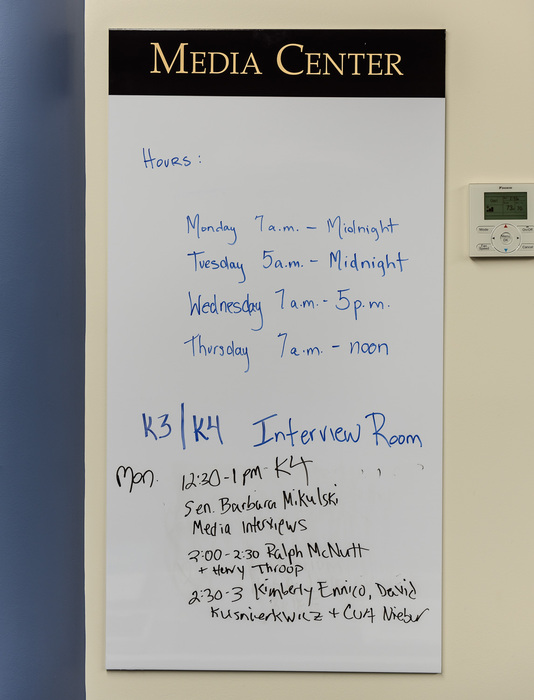 MEDIA CENTER
Hours:
Monday 7a.m. – Midnight
Tuesday 5a.m. – Midnight
Wednesday 7a.m. - 5p.m.
Thursday 7a.m. – noon
K3/K4 Interview Room
Mon. 12:30-1pm- K4
Sen. Barbara Mikulski
Media Interviews
2:00-2:30 Ralph McNutt
+ Henry Throop
2:30-3 Kimberly Ennico, David
+ Curt Niebur